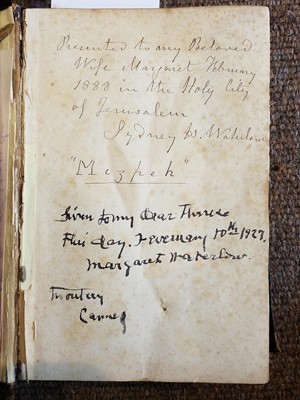 Presented to my Beloved
Wife Margaret February
1888 in the Holy City
of Jerusalem
Sydney W. Waterlow
"Mizpeh"
Given to my dear Therese
This day. February 10th 1927.
Margaret Waterlow.
Cannes